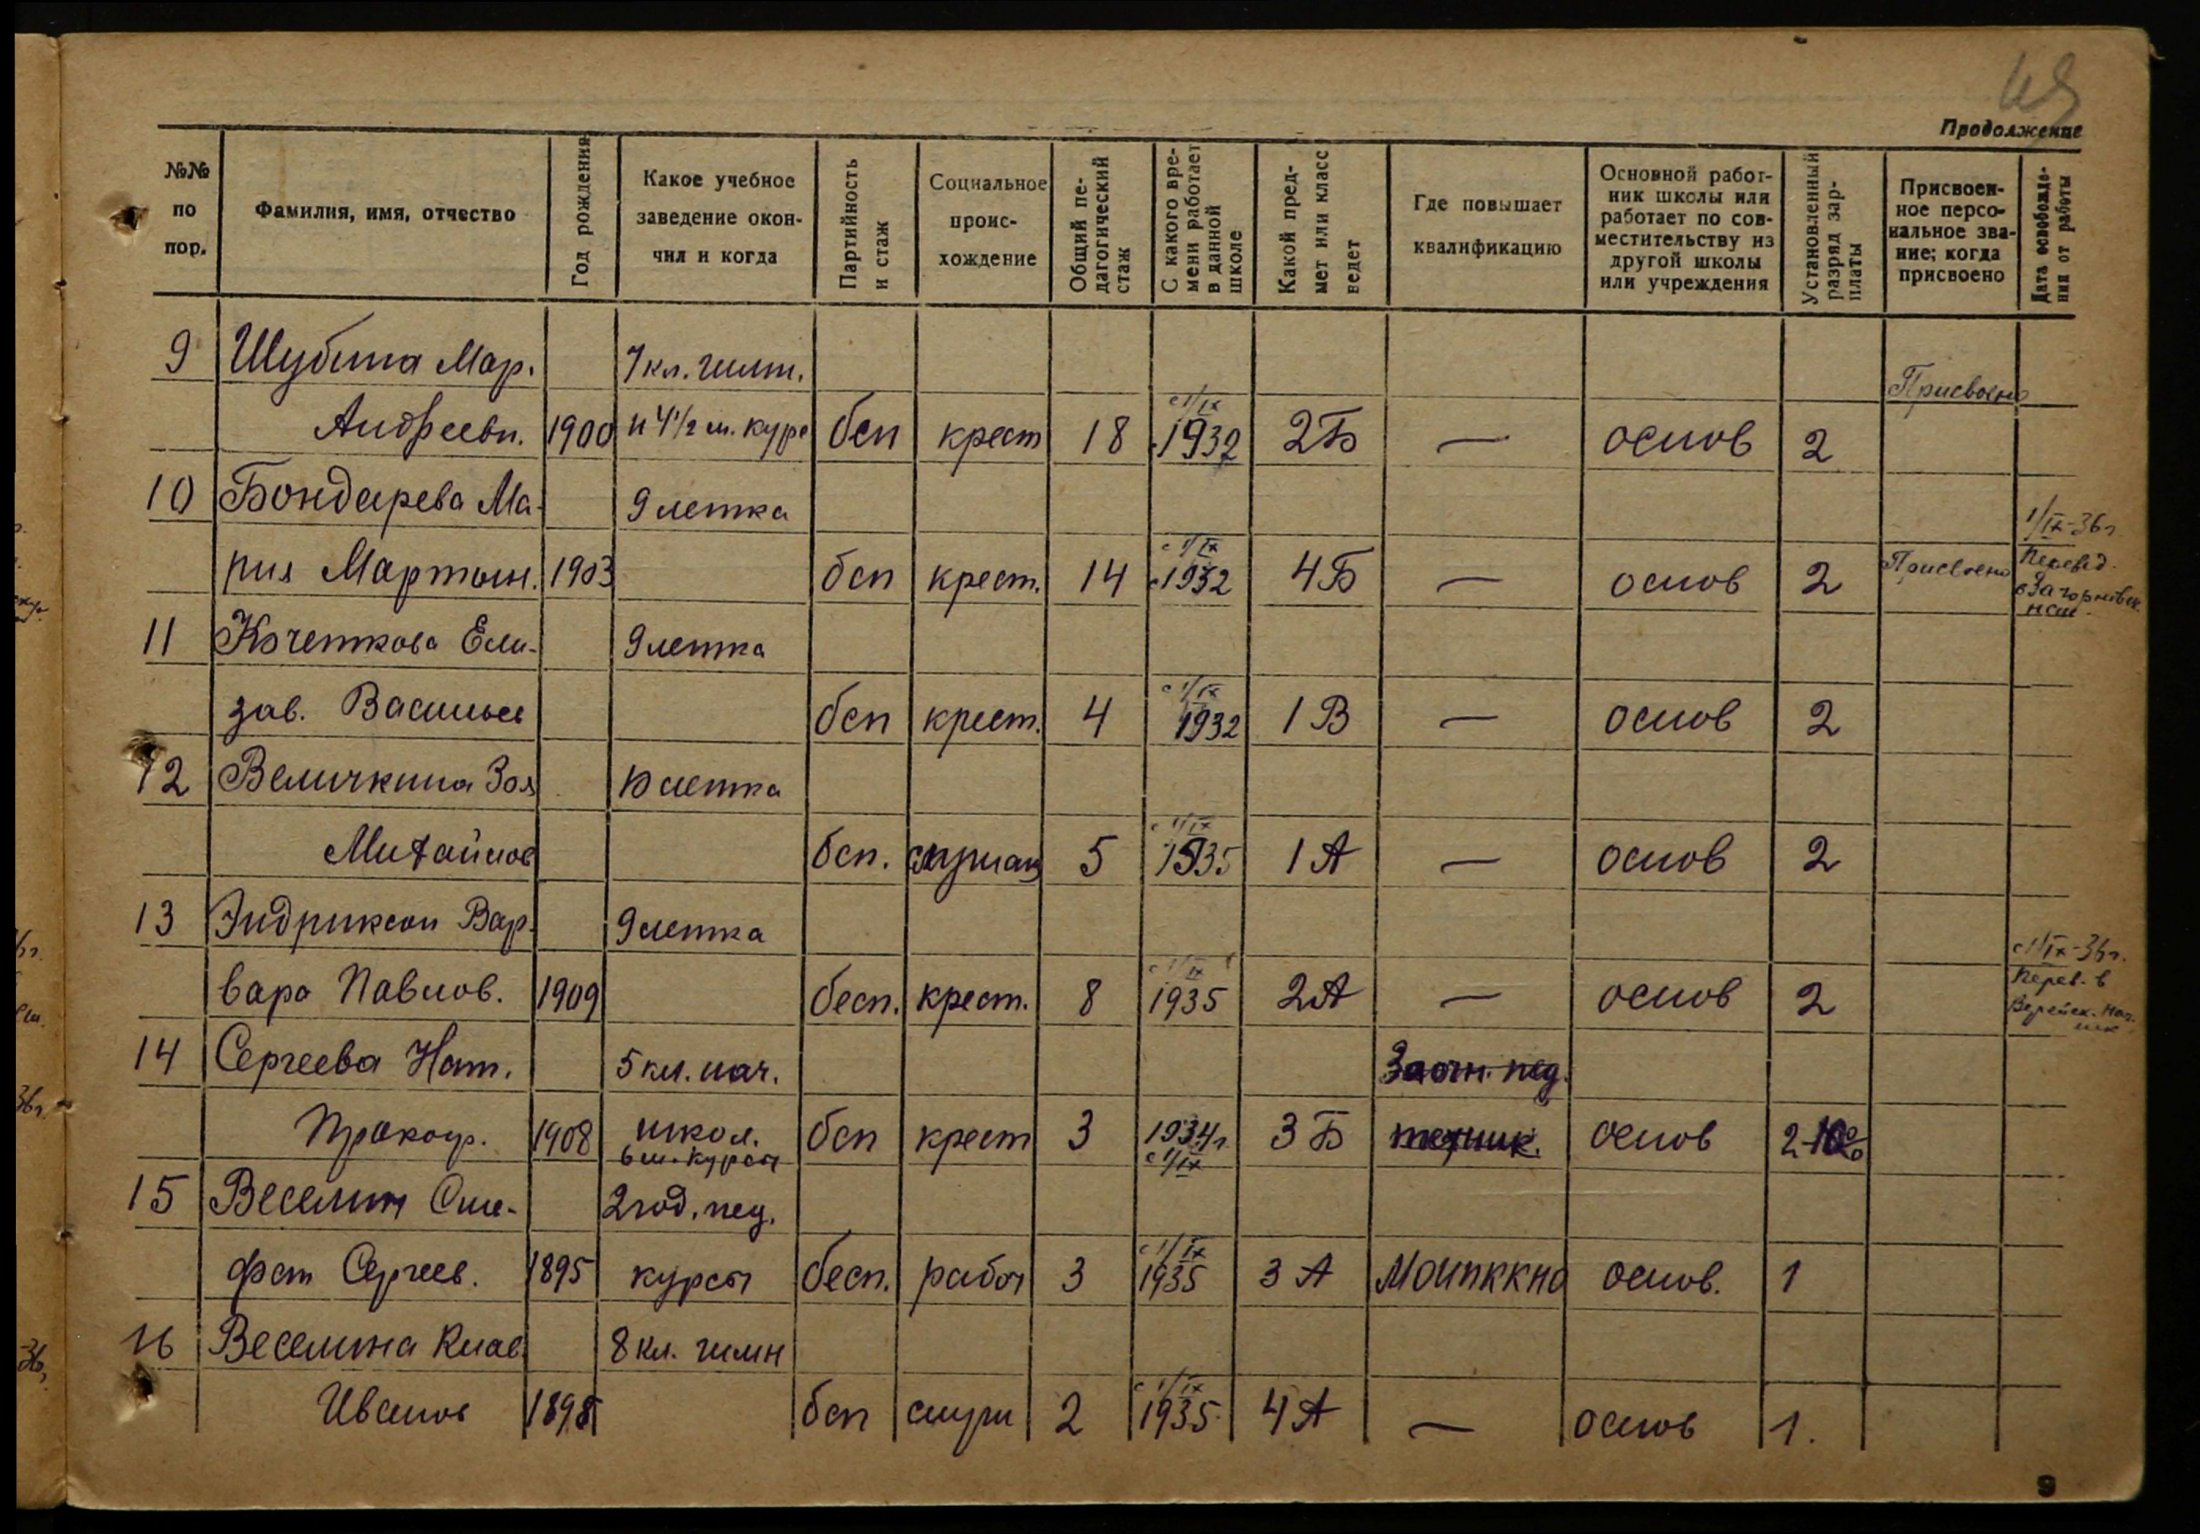 49
Продолжение
№№ по пор.
Фамилия, имя, отчество
Год рождения
Какое учебное заведение окончил и когда
Партийность и стаж
Социальное происхождение
Общий педагогический стаж
С какого времени работает в данной школе
Какой предмет или класс ведет
Где повышает квалификацию
Основной работник школы или работает по совместительству из другой школы или учреждения
Установленный разряд зарплаты
Присвоенное персональное звание; когда присвоено
Дата освобождения от работы
9 Шубина Мар. 7 кл. гимн. Присвоено
Андреевн. 1900 и 4 1/2 м. курс бсп крест 18 с 1/IX 1932 2Б — основ 2
10 Бондарева Ма- 9 летка 1/IX-36г.
рия Мартын. 1903 бсп крест. 14 с 1/IX 1932 4Б — основ 2 Присвоено Перевед.
в Загорновск.
нсш.
11 Кочеткова Ели- 9летка
зав. Васильев бсп крест. 4 с 1/IX 1932 1 В — основ 2
12 Величкина Зоя 10 летка
Михайлов бсп. служащ 5 с 1/IX 1935 1 А — основ 2
13 Эндриксон Вар- 9летка с 1/IX-36г.
вара Павлов. 1909 бесп. крест. 8 с 1/IX 1935 2А — основ 2 Перев. в
Верейск. нач.
шк
14 Сергеева Нат. 5 кл. нач. Заочн. пед.
Прокоф. 1908 школ. бсп крест 3 1934г. 3 Б техник. основ 2-10%
6 м. курсы с 1/IX
15 Веселин Сте- 2 год. пед.
фан Сергеев. 1895 курсы бесп. рабоч 3 с 1/IX 1935 3 А МОИПККНО основ. 1
16 Веселина Клав. 8 кл. гимн
Иванов 1898 бсп служ 2 с 1/IX 1935 4 А — основ 1.
9